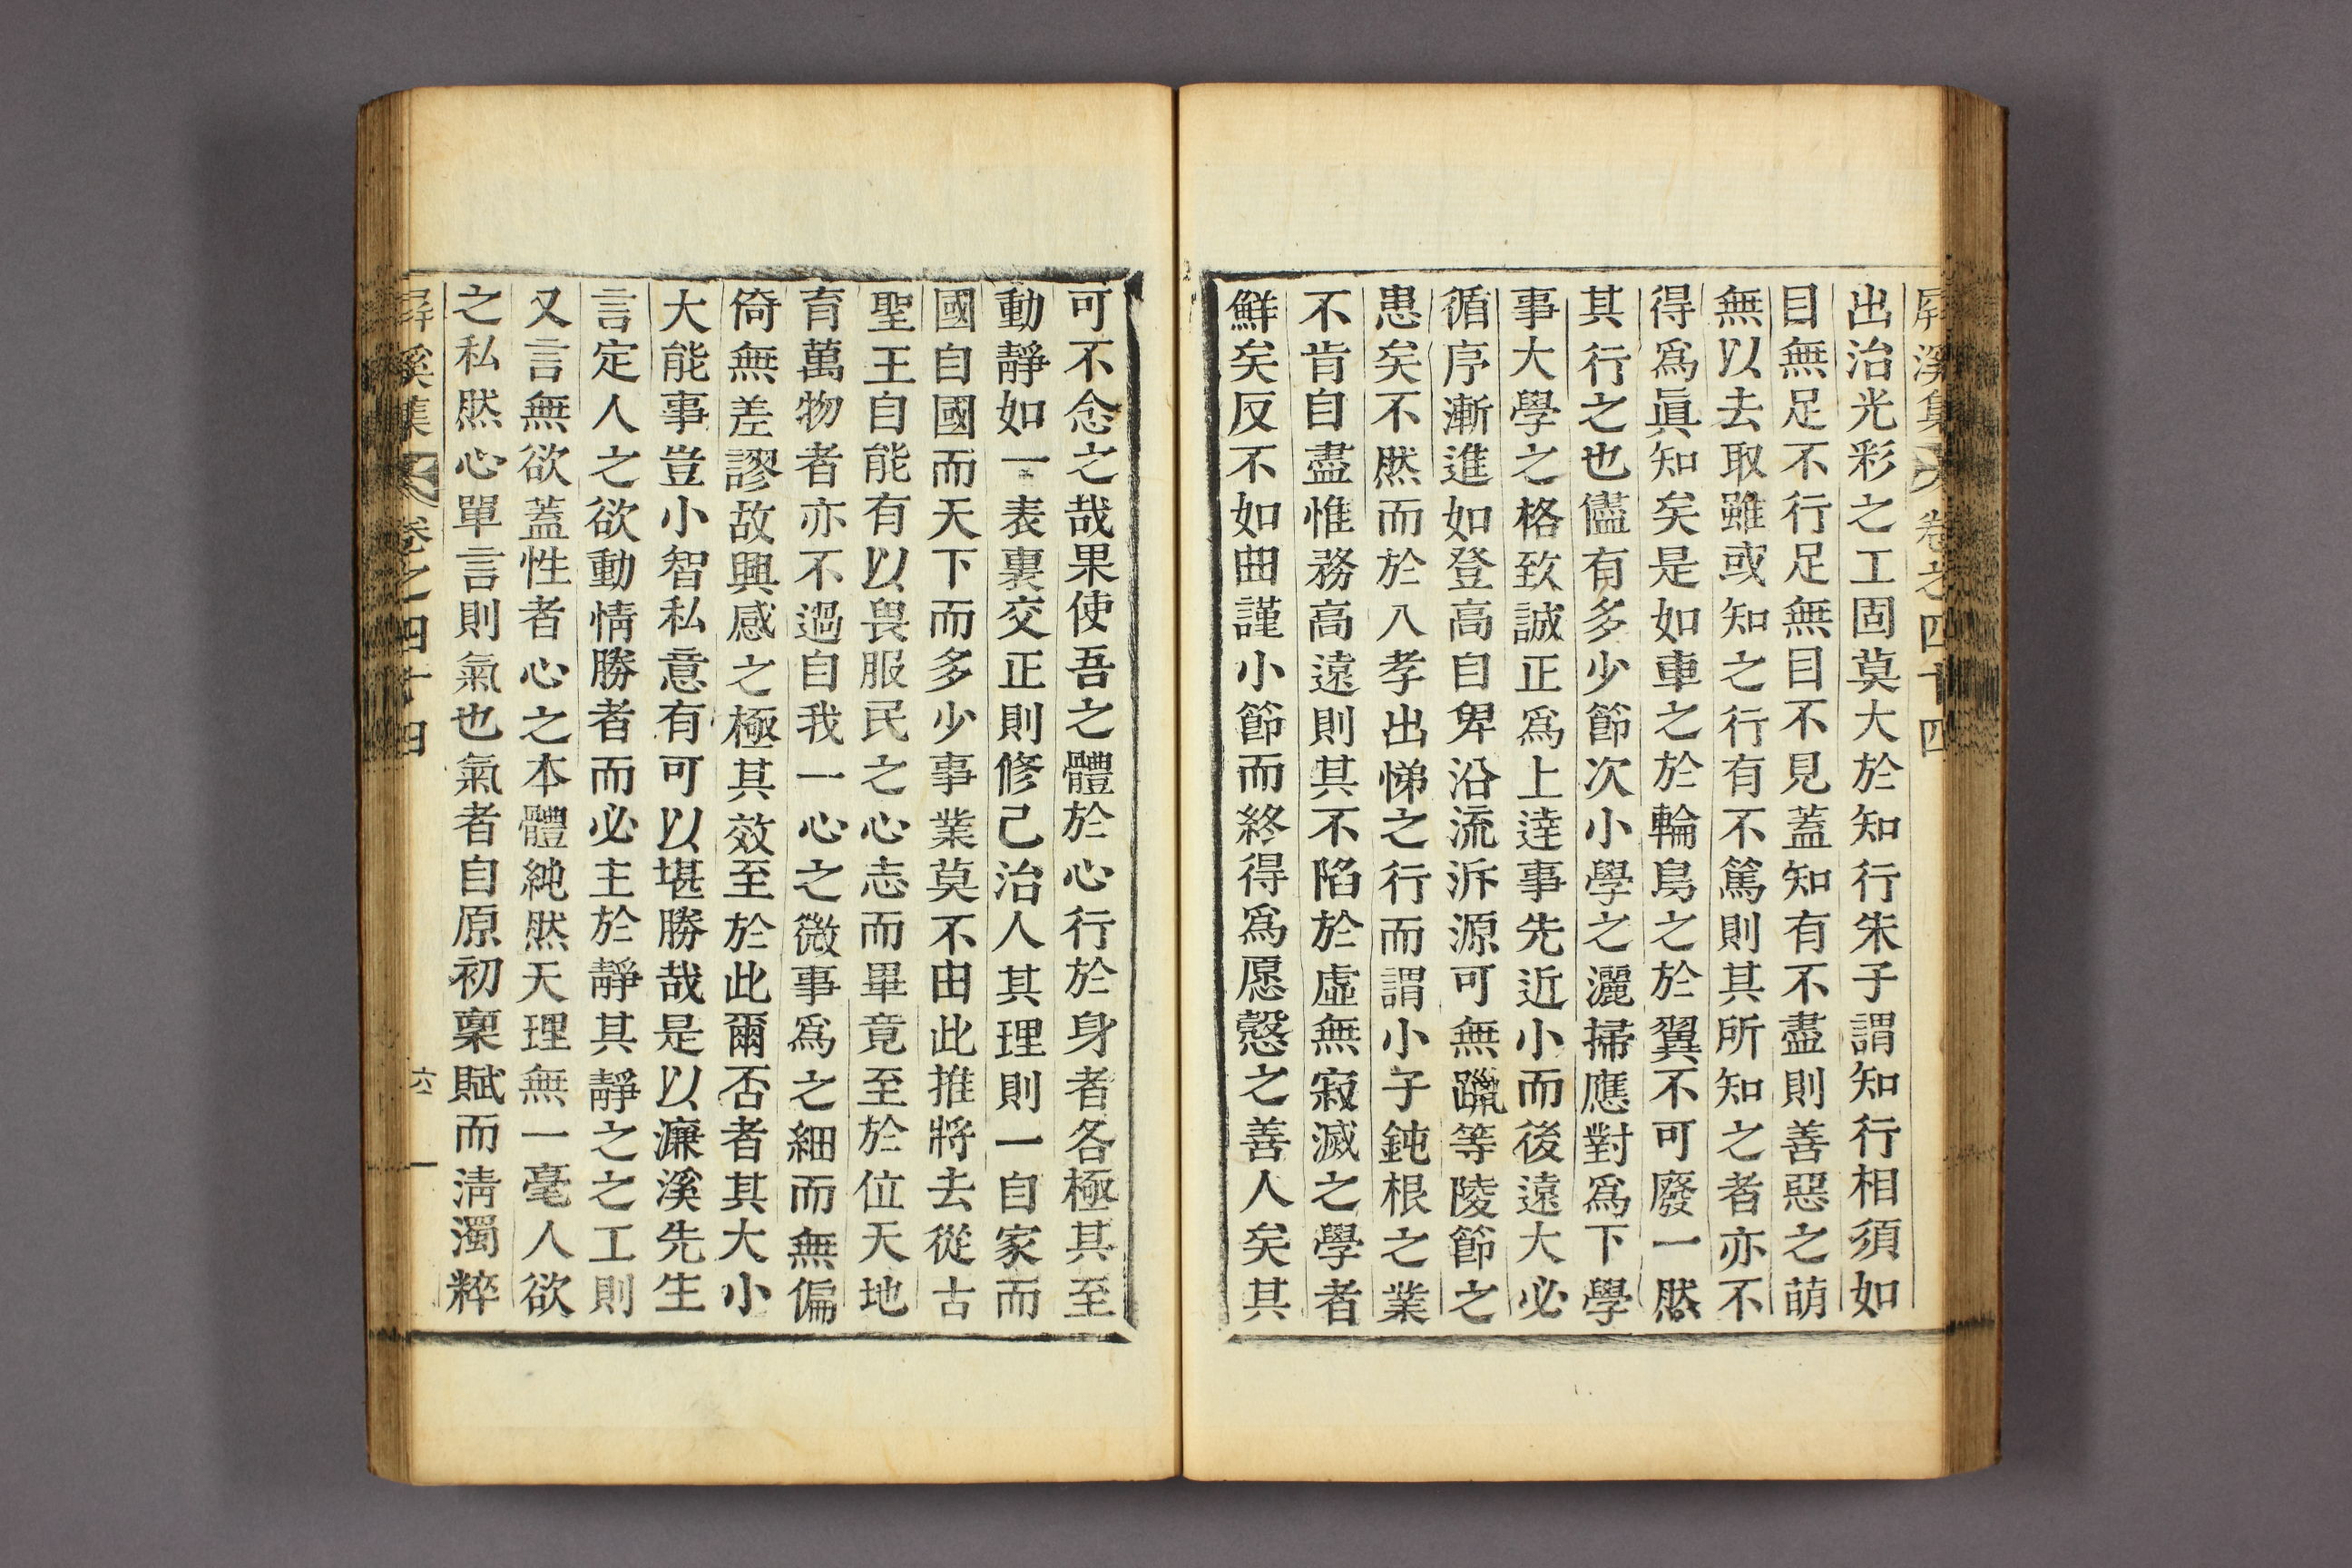 屛溪集 卷之四十四
出治光彩之工固莫大於知行朱子謂知行相須如
目無足不行足無目不見蓋知有不盡則善惡之萌
無以去取雖或知之行有不篤則其所知之者亦不
得爲眞知矣是如車之於輪鳥之於翼不可廢一然
其行之也儘有多少節次小學之灑掃應對爲下學
事大學之格致誠正爲上達事先近小而後遠大必
循序漸進如登高自卑沿流泝源可無躐等陵節之
患矣不然而於入孝出悌之行而謂小子鈍根之業
不肯自盡惟務高遠則其不陷於虛無寂滅之學者
鮮矣反不如曲謹小節而終得爲愿慤之善人矣其
可不念之哉果使吾之體於心行於身者各極其至
動靜如一表裏交正則修己治人其理則一自家而
國自國而天下而多少事業莫不由此推將去從古
聖王自能有以畏服民之心志而畢竟至於位天地
育萬物者亦不過自我一心之微事爲之細而無偏
倚無差謬故興感之極其效至於此爾否者其大小
大能事豈小智私意有可以堪勝哉是以濂溪先生
言定人之欲動情勝者而必主於靜其靜之之工則
又言無欲蓋性者心之本體純然天理無一毫人欲
之私然心單言則氣也氣者自原初稟賦而淸濁粹
屛溪集 卷之四十四 六一